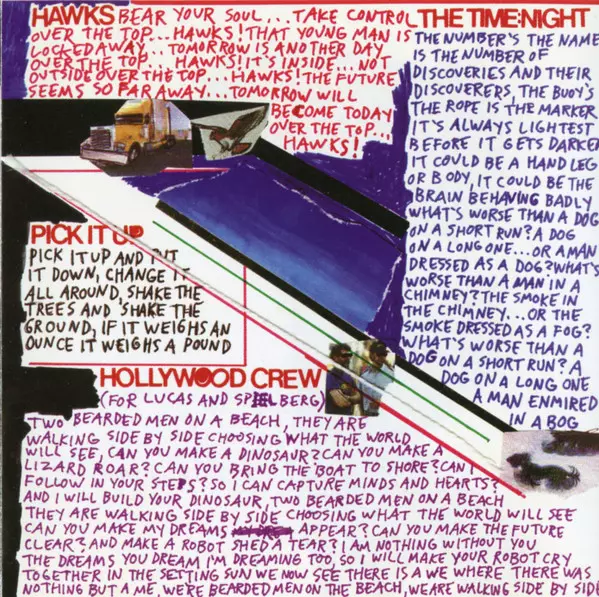 HAWKS BEAR YOUR SOUL... TAKE CONTROL
OVER THE TOP... HAWKS! THAT YOUNG MAN IS
LOCKED AWAY... TOMORROW IS ANOTHER DAY
OVER THE TOP... HAWKS! IT'S INSIDE... NOT
OUTSIDE OVER THE TOP... HAWKS! THE FUTURE
SEEMS SO FAR AWAY... TOMORROW WILL
BECOME TODAY
OVER THE TOP...
HAWKS!
THE TIME:NIGHT
THE NUMBER'S THE NAME
IS THE NUMBER OF
DISCOVERIES AND THEIR
DISCOVERERS, THE BUOY'S
THE ROPE IS THE MARKER
IT'S ALWAYS LIGHTEST
BEFORE IT GETS DARKER
IT COULD BE A HAND LEG
OR BODY, IT COULD BE THE
BRAIN BEHAVING BADLY
WHAT'S WORSE THAN A DOG
ON A SHORT RUN? A DOG
ON A LONG ONE... OR A MAN
DRESSED AS A DOG? WHAT'S
WORSE THAN A MAN IN A
CHIMNEY? THE SMOKE IN
THE CHIMNEY... OR THE
SMOKE DRESSED AS A FOG?
WHAT'S WORSE THAN A
DOG ON A SHORT RUN? A
DOG ON A LONG ONE
A MAN ENMIRED
IN A BOG
PICK IT UP
PICK IT UP AND PUT
IT DOWN, CHANGE IT
ALL AROUND, SHAKE THE
TREES AND SHAKE THE
GROUND, IF IT WEIGHS AN
OUNCE IT WEIGHS A POUND
HOLLYWOOD CREW
(FOR LUCAS AND SPIELBERG)
TWO BEARDED MEN ON A BEACH, THEY ARE
WALKING SIDE BY SIDE CHOOSING WHAT THE WORLD
WILL SEE, CAN YOU MAKE A DINOSAUR? CAN YOU MAKE A
LIZARD ROAR? CAN YOU BRING THE BOAT TO SHORE? CAN I
FOLLOW IN YOUR STEPS? SO I CAN CAPTURE MINDS AND HEARTS?
AND I WILL BUILD YOUR DINOSAUR, TWO BEARDED MEN ON A BEACH
THEY ARE WALKING SIDE BY SIDE CHOOSING WHAT THE WORLD WILL SEE
CAN YOU MAKE MY DREAMS APPEAR? CAN YOU MAKE THE FUTURE
CLEAR? AND MAKE A ROBOT SHED A TEAR? I AM NOTHING WITHOUT YOU
THE DREAMS YOU DREAM I'M DREAMING TOO, SO I WILL MAKE YOUR ROBOT CRY
TOGETHER IN THE SETTING SUN WE NOW SEE THERE IS A WE WHERE THERE WAS
NOTHING BUT A ME, WE'RE BEARDED MEN ON THE BEACH, WE ARE WALKING SIDE BY SIDE